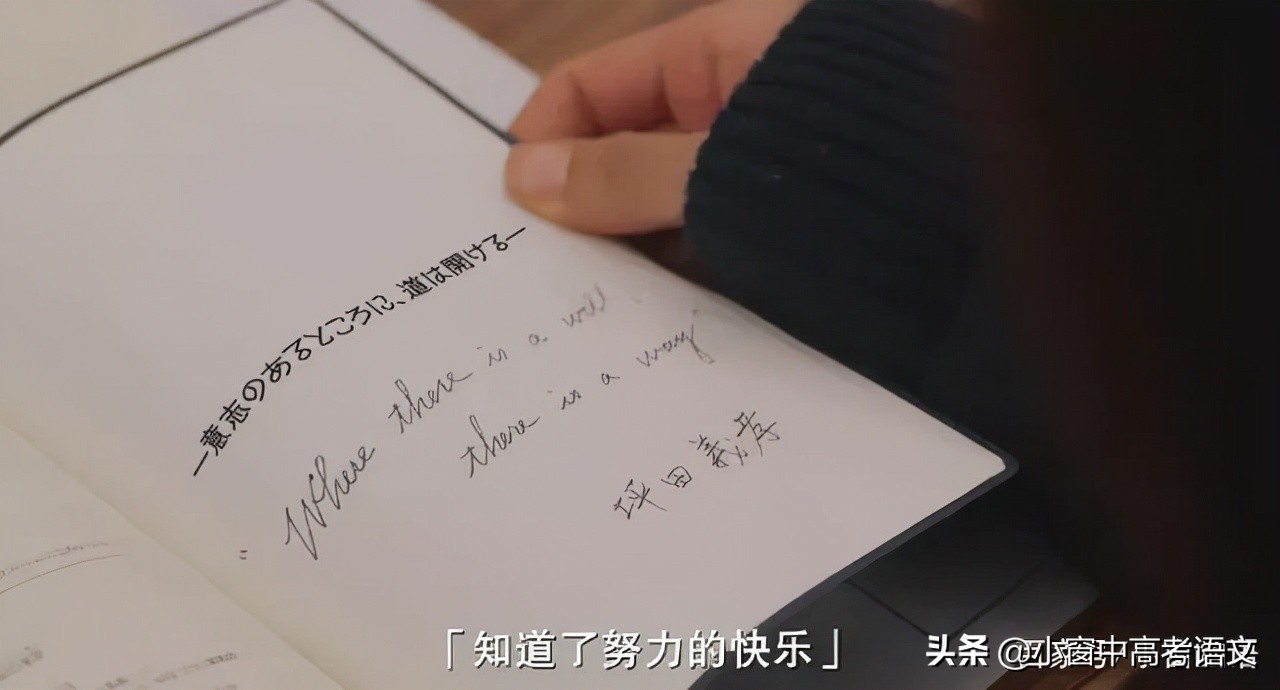 —意志のあるところに、道は開ける—
"Where there is a will,
there is a way"
坪田義孝
「知道了努力的快乐」
头条 @小窗中高考语文